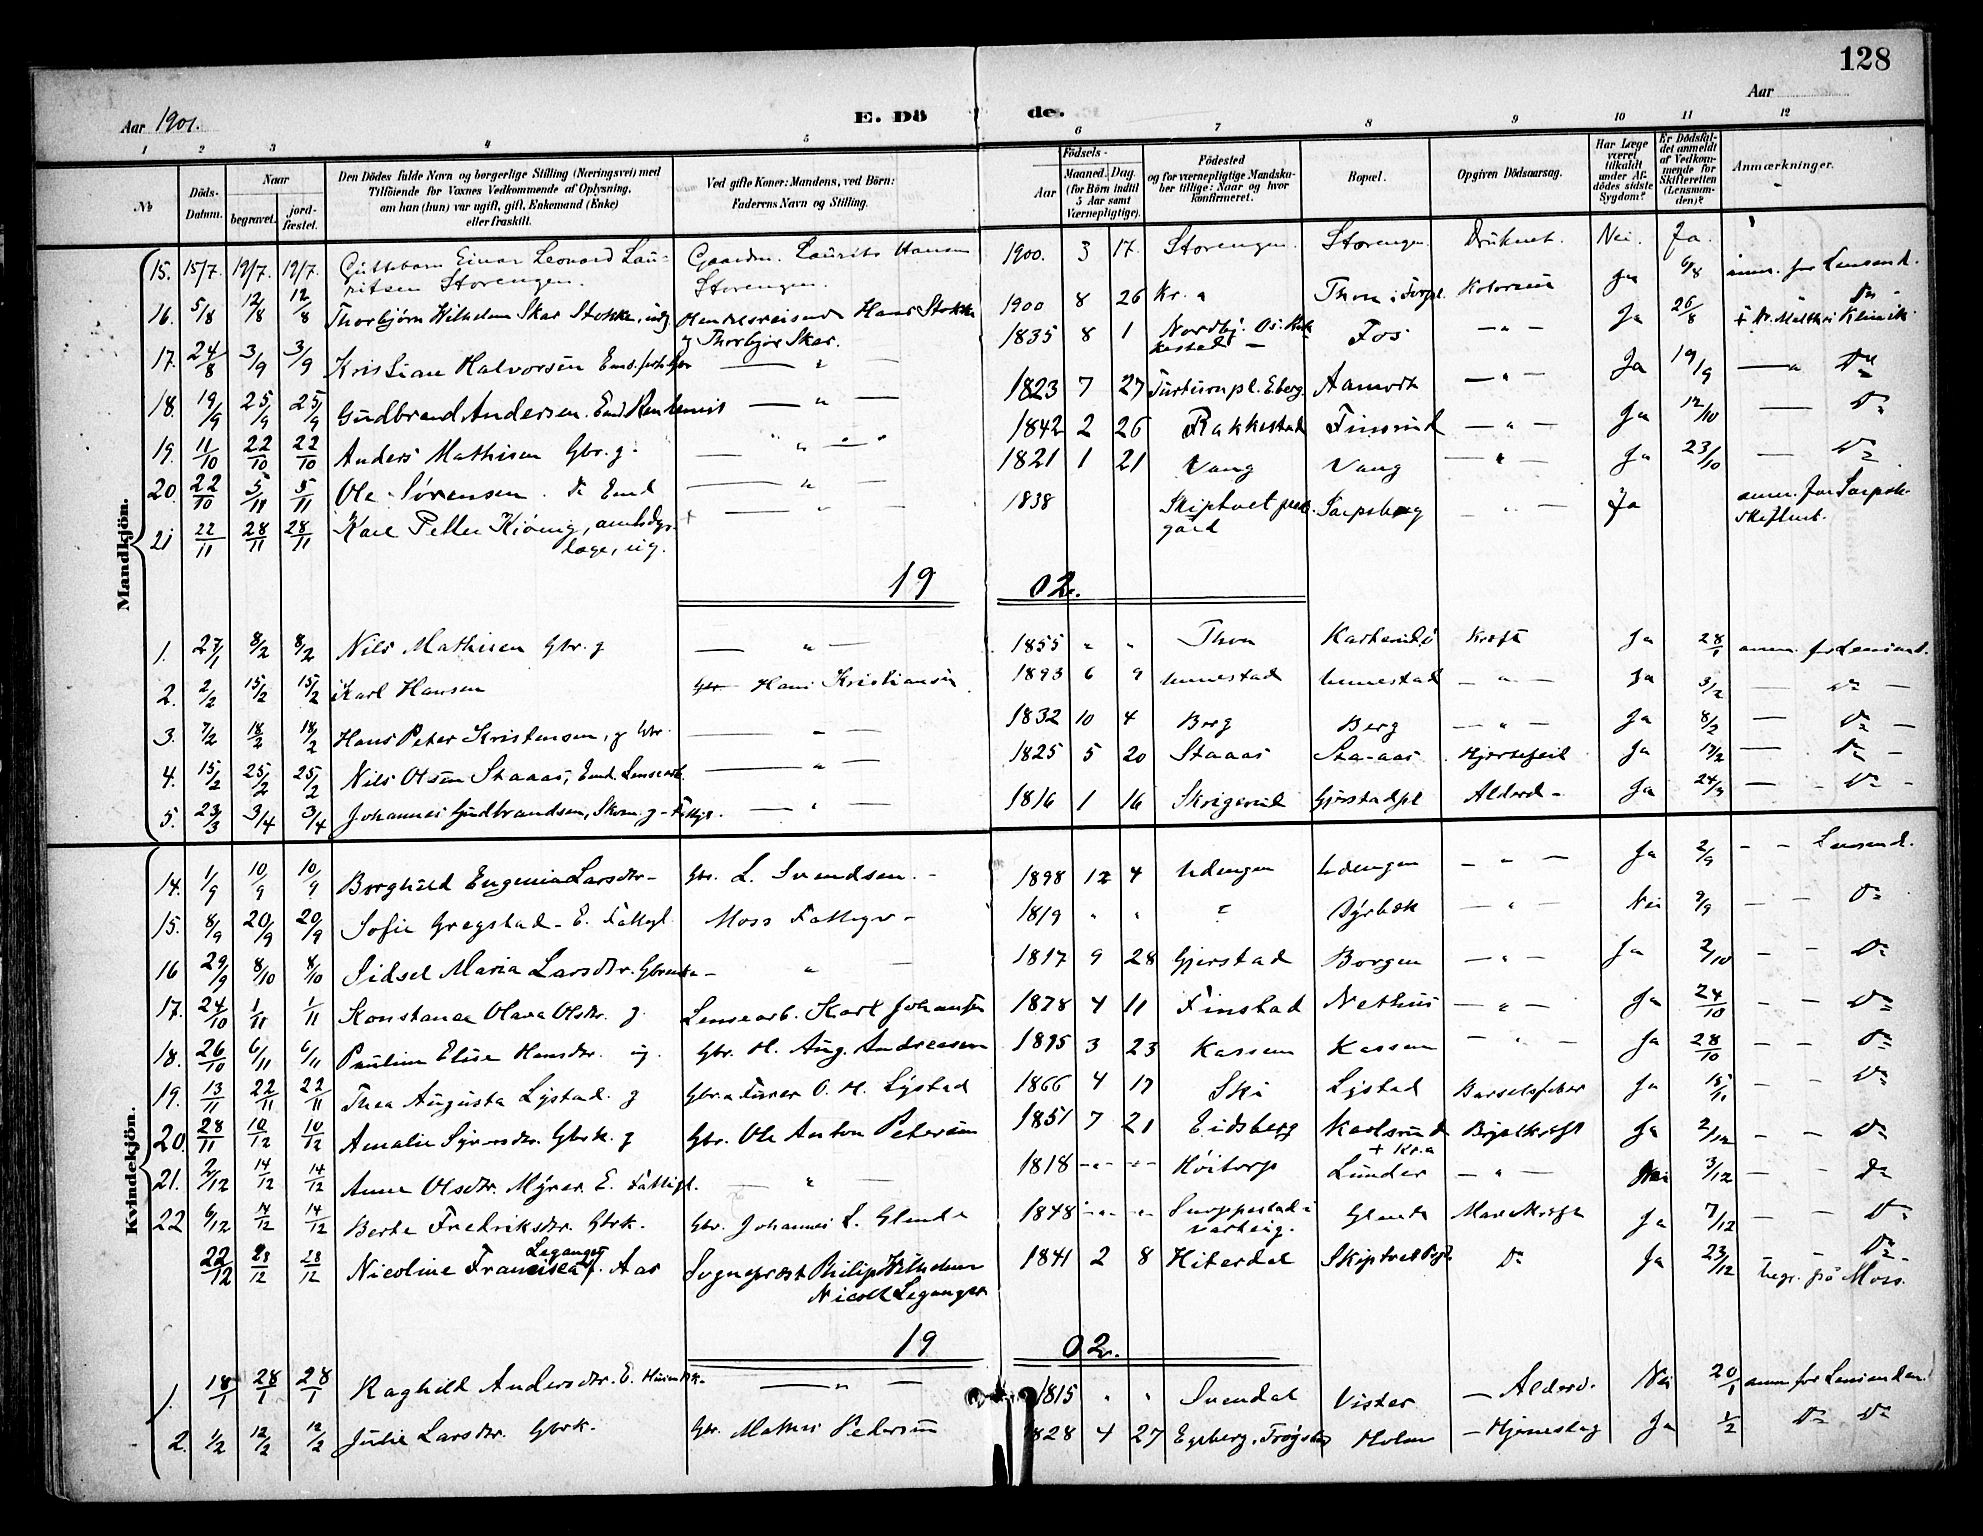 128
Aar 1901. E. Döde. Aar
1 2 3 4 5 6 7 8 9 10 11 12
№
Döds-Datum.
Naar
begravet.
jordfæstet.
Den Dödes fulde Navn og borgerlige Stilling (Næringsvei) med
Tilföiende for Voxnes Vedkommende af Oplysning,
om han (hun) var ugift, gift, Enkemand (Enke)
eller fraskilt.
Ved gifte Koner: Mandens, ved Börn:
Faderens Navn og Stilling.
Födsels-
Aar
Maaned. Dag.
(for Börn indtil
5 Aar samt
Værnepligtige).
Födested
og for værnepligtige Mandska-
ber tillige: Naar og hvor
konfirmeret.
Bopæl.
Opgiven Dödsaarsag.
Har Læge
været
tilkaldt
under Af-
dödes sidste
Sygdom?
Er Dödsfal-
det anmeldt
af Vedkom-
mende for
Skifteretten
(Lensman-
den)?
Anmærkninger.
Mandkjön.
15. 15/7. 19/7. 19/7. Guttebarn Einar Leonard Lau- Gaardm. Laurits Hansen 1900. 3 17. Storengen. Storengen. Druknet. Nei. Ja.
ritsen Storengen. Storengen.
16. 5/8 12/8 12/8 Thorbjörn Wilhelm Skar Stokke, Handelsreisende Hans Stokke 1900 8 26 Kr.a Thon i Ja 6/8 anm. for Lensmd.
g Thorbjör Skar.
17. 24/8 3/9 3/9 Kristian Halvorsen 1835 8 1 Nordby. Fos — " — Ja 26/8 Klinik. Do
18. 19/9 25/9 25/9 Gudbrand Andersen. — " — 1823 7 27 Eberg. Aamodt — " — Ja 19/9 — " Do
19. 11/10 22/10 22/10 Anders Mathisen Gbr. g. 1842 2 26 Rakkestad Finsrud — " — Ja 12/10 — Do
20. 22/10 5/11 5/11 Ole Sørensen. Do Emd — " — 1821 1 21 Vang Vang — " — Ja 23/10 — Do
21 22/11 28/11 28/11 Karl Petter Kiönig, amtsdyr- 1838 Skiptvet prest- Sarpsborg — " — Ja anm. for Sarpsb.
læge, ug. gård Skifteret.
19 02.
1. 27/1 8/2 8/2 Nils Mathisen Gbr. g — " — 1855 " " Thon Karlsrud Kræft Ja 28/1 anm. for Lensmd.
2. 2/2 15/2 15/2 Karl Hansen Gbr. Hans Kristiansen 1893 6 9 Unnestad Unnestad — " — Ja 3/2 — Do —
3. 7/2 18/2 18/2 Hans Peter Kristensen, g Gbr. — " — 1832 10 4 Berg Berg — " — Ja 8/2 — Do —
4. 15/2 25/2 25/2 Nils Olsen Staaas, Emd. — " — 1825 5 20 Staaas Staaas Hjertefeil Ja 17/2 — Do —
5. 23/3 3/4 3/4 Johannes Gudbrandsen, Skom. g - Fattigl. — " — 1816 1 16 Skrigerud Gjerstadpl Alderd - Ja 24/3 — Do —
Kvindekjön.
14. 1/9 10/9 10/9 Borghild Eugenia Larsdtr - Gbr. L. Svendsen. - 1898 12 4 Udengen Udengen — " — Ja 2/9 — — Lensmd.
15. 8/9 20/9 20/9 Sofie Gregstad - E. Fattigl. Moss Fattigv - 1819 " " Dyrbæk — " — Nei 9/9 — — Do
16 29/9 8/10 8/10 Sidsel Maria Larsdtr. — " — 1817 9 28 Gjerstad Borgen — " — Ja 2/10 — Do
17. 24/10 1/11 1/11 Konstance Olava Olsdtr. g Karl Johansen 1878 4 11 Finstad Nethus — " — Ja 24/10 — — Do
18. 26/10 6/11 6/11 Pauline Elise Hansdtr. ug. Gbr. H. Aug. Andreasen 1895 3 23 Kassem Kassem — " — Ja 28/10 — — Do
19. 13/11 22/11 22/11 Thea Augusta Lystad. g Gbr. O. H. Lystad 1866 4 17 Ski Lystad Barselfeber Ja 15/11 — — Do
20. 28/11 10/12 10/12 Amalie Gbrk. g Gbr. Ole Anton Petersen 1851 7 21 Eidsberg Karlsrud Brystkræft Ja 2/12 — — Do
+ Kr.a
21. 2/12 14/12 14/12 Anne Olsdtr. Myrer. E. Fattigl. — " — 1818 - " - - " - Höitorp Lunder — " — Nei 3/12 — Do
22 6/12 14/12 14/12 Berte Fredriksdtr. Gbrk. Gbr. Johannes L. Glende 1848 - " - - " - i Glende Mavekræft Ja 7/12 — — Do
Varteig.
22/12 28/12 28/12 Nicoline Francisca Leganger f. Aas Sogneprest Philip Wilhelm 1841 2 8 Hiterdal Skiptvet Pgd. Do Ja 23/12 — Do
Nicoll Leganger begr. på Moss.
19 02.
1. 18/1 28/1 28/1 Raghild Andersdtr. E. — " — 1815 " " Svendal Vister — Alderd. Nei 20/1 anm. for Lensmanden
2. 1/2 12/2 12/2 Julie Larsdtr. Gbrk. Gbr. Mathis Pedersen 1828 4 27 Egeberg, Trögstad Holm — Hjerneslag Ja 1/2 Do Do